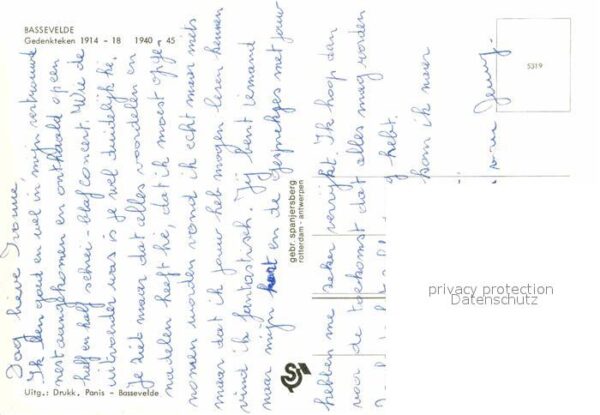 BASSEVELDE
Gedenkteken 1914 - 18 1940 - 45
Dag lieve Ivonne,
Ik ben goed en wel in mijn vertrouwde
nest aangekomen en onthaald op een
half en half schrei-blaf concert. Wie de
uitvoerder was is je wel duidelijk he.
Je ziet maar dat alles voordelen en
nadelen heeft he, dat ik moest opge-
nomen worden vond ik echt maar niets
maar dat ik jouw heb mogen leren kennen
vind ik fantastisch. Jij bent iemand
naar mijn hart en de gesprekjes met jouw
hebben me zeker verrijkt. Ik hoop dan
voor de toekomst dat alles mag worden
hebt.
kom ik meer
Jenny.
gebr. spanjersberg
rotterdam - antwerpen
S
5319
Uitg.: Drukk. Panis - Bassevelde
privacy protection
Datenschutz